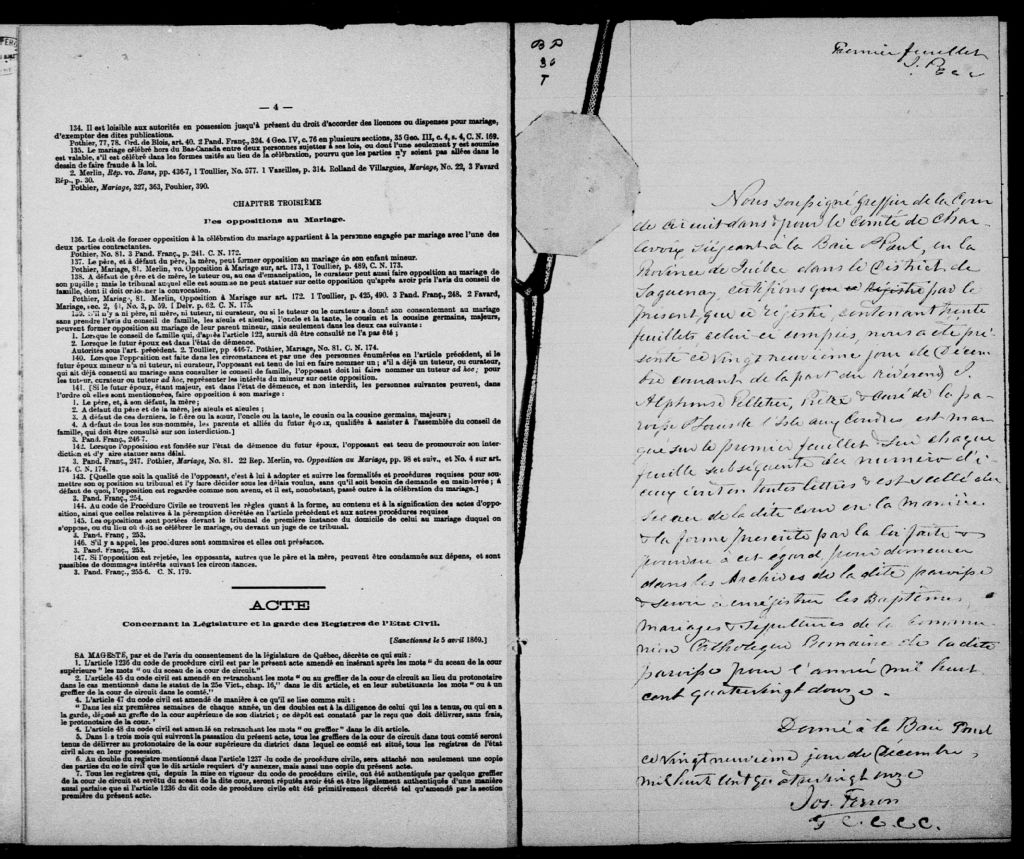 — 4 —
134. Il est loisible aux autorités en possession jusqu'à présent du droit d'accorder des licences ou dispenses pour mariage,
d'exempter des dites publications.
Pothier, 77, 78. Ord. de Blois, art. 40. 2 Pand. Franç., 324. 4 Geo. IV, c. 76 en plusieurs sections, 35 Geo. III, c. 4, s. 4, C. N. 169.
135. Le mariage célébré hors du Bas-Canada entre deux personnes sujettes à ses lois, ou dont l'une seulement y est soumise
est valable, s'il est célébré dans les formes usités au lieu de la célébration, pourvu que les parties n'y soient pas allées dans le
dessin de faire fraude à la loi.
2. Merlin, Rép. vo. Bans, pp. 436-7, 1 Toullier, No. 577. 1 Vazeilles, p. 314. Rolland de Villargues, Mariage, No. 22, 3 Favard
Rép., p. 30.
Pothier, Mariage, 327, 363, Pouhier, 390.
CHAPITRE TROISIÈME
Des oppositions au Mariage.
136. Le droit de former opposition à la célébration du mariage appartient à la personne engagée par mariage avec l'une des
deux parties contractantes.
Pothier, No. 81. 3 Pand. Franç., p. 241. C. N. 172.
137. Le père, et à défaut du père, la mère, peut former opposition au mariage de son enfant mineur.
Pothier, Mariage, 81. Merlin, vo. Opposition à Mariage sur, art. 173, 1 Toullier, p. 489, C. N. 173.
138. A défaut de père et de mère, le tuteur, ou en cas d'émancipation, le curateur peut aussi faire opposition au mariage de
son pupille; mais le tribunal auquel elle est soumise ne peut statuer sur cette opposition qu'après avoir pris l'avis du conseil de
famille, dont il doit ordonner la convocation.
Pothier, Mariage, 81. Merlin, Opposition à Mariage sur art. 172. 1 Toullier, p. 425, 490. 3 Pand. Franç., 248. 2 Favard,
Mariage, sec. 2, No. 3, p. 59. 1 Delv. p. 62. C. N. 175.
139. S'il n'y a ni père, ni mère, ni tuteur, ni curateur, ou si le tuteur ou le curateur a donné son consentement au mariage
sans prendre l'avis du conseil de famille, les aïeuls et aïeules, l'oncle et la tante, le cousin et la cousine germains, majeurs,
peuvent former opposition au mariage de leur parent mineur, mais seulement dans les deux cas suivants :
1. Lorsque le conseil de famille qui, d'après l'article 122, aurait dû être consulté ne l'a pas été ;
2. Lorsque le futur époux est dans l'état de démence.
Autorités sous l'art. précédent. 2. Toullier, pp 446-7. Pothier, Mariage, No. 81. C. N. 174.
140. Lorsque l'opposition est faite dans les circonstances et par une des personnes énumérées en l'article précédent, si le
futur époux mineur n'a ni tuteur, ni curateur, l'opposant est tenu de lui en faire nommer un ; s'il a déjà un tuteur, ou curateur,
qui ait déjà consenti au mariage sans consulter le conseil de famille, l'opposant doit lui faire nommer un tuteur ad hoc ; pour
les tuteur, curateur ou tuteur ad hoc, représenter les intérêts du mineur sur cette opposition.
141. [Si le futur époux, étant majeur, est dans l'état de démence, et non interdit, les personnes suivantes peuvent, dans
l'ordre où elles sont mentionnées, faire opposition à son mariage :
1. Le père, et, à son défaut, la mère ;
2. A défaut du père et de la mère, les aïeuls et aïeules ;
3. A défaut de ces derniers, le frère ou la sœur, l'oncle ou la tante, le cousin ou la cousine germains, majeurs ;
4. A défaut de tous les sus-nommés, les parents et alliés du futur époux, qualifiés à assister à l'assemblée du conseil de
famille, qui doit être consulté sur son interdiction.]
3. Pand. Franç., 246-7.
142. Lorsque l'opposition est fondée sur l'état de démence du futur époux, l'opposant est tenu de promouvoir son inter-
diction et d'y aire statuer sans délai.
3. Pand. Franç., 247. Pothier, Mariage, No. 81. 22 Rep. Merlin, vo. Opposition au Mariage, pp. 98 et suiv., et No. 4 sur art.
174. C. N. 174.
143. [Quelle que soit la qualité de l'opposant, c'est à lui à adopter et suivre les formalités et procédures requises pour sou-
mettre son opposition au tribunal et l'y faire décider sous les délais voulus, sans qu'il soit besoin de demande en main-levée ; à
défaut de quoi, l'opposition est regardée comme non avenu, et il est, nonobstant, passé outre à la célébration du mariage.]
3. Pand. Franç., 254.
144. Au code de Procédure Civile se trouvent les règles quant à la forme, au contenu et à la signification des actes d'oppo-
sition, ainsi que celles relatives à la péremption décrétée en l'article précédent et aux autres procédures requises
145. Les oppositions sont portées devant le tribunal de première instance du domicile de celui au mariage duquel on
s'oppose, ou du lieu où doit se célébrer le mariage, ou devant un juge de ce tribunal.
3. Pand. Franç., 253.
146. S'il y a appel, les procédures sont sommaires et elles ont présance.
3. Pand. Franç., 253.
147. Si l'opposition est rejetée, les opposants, autres que le père et la mère, peuvent être condamnés aux dépens, et sont
passibles de dommages intérêts suivant les circonstances.
3. Pand. Franç., 255-6. C. N. 179.
ACTE
Concernant la Législature et la garde des Registres de l'Etat Civil.
[Sanctionné le 5 avril 1869.]
SA MAGESTÉ, par et de l'avis du consentement de la législature de Québec, décrète ce qui suit :
1. L'article 1236 du code de procédure civil est par le présent acte amendé en insérant après les mots " du sceau de la cour
supérieure " les mots " ou du sceau de la cour de circuit."
2. L'article 45 du code civil est amendé en retranchant les mots " ou au greffier de la cour de circuit au lieu du protonotaire
dans le cas mentionné dans le statut de la 25e Vict., chap. 16," dans le dit article, et en leur substituant les mots " ou à un
greffier de la cour de circuit dans le comté."
4. L'article 47 du code civil est amendé de manière à ce qu'il se lise comme suit :
" Dans les six premières semaines de chaque année, un des doubles est à la diligence de celui qui les a tenus, ou qui en a
la garde, déposé au greffe de la cour supérieure de son district ; ce dépôt est constaté par le reçu que doit délivrer, sans frais,
le protonotaire de la cour. "
4. L'article 48 du code civil est amendé en retranchant les mots " ou greffier " dans le dit article.
5. Dans les trois mois qui suivront la passation du présent acte, tous les greffiers de la cour de circuit dans tout comté seront
tenus de délivrer au protonotaire de la cour supérieure du district dans lequel ce comté est situé, tous les registres de l'état
civil alors en leur possession.
6. Au double du registre mentionné dans l'article 1237 du code de procédure civile, sera attaché non seulement une copie
des parties du code civil que le dit article requiert d'y annexer, mais aussi une copie du présent acte
7. Tous les registres qui, depuis la mise en vigueur du code de procédure civile, ont été authentiqués par quelque greffier
de la cour de circuit et revêtu du sceau de la dite cour, seront réputés avoir été et être légalement authentiqués d'une manière
aussi parfaite que si l'article 1236 du dit code de procédure civile eût été primitivement décrété tel qu'amendé par la section
première du présent acte.
B P
30
T
Premier feuillet
J. F.
G C C
Nous soussigné greffier de la Cour
de circuit dans & pour le comté de Char-
levoix siégeant à la Baie St Paul, en la
Province de Québec dans le District de
Saguenay, certifions que ce Registre par le
présent, que ce registre, contenant trente
feuillets celui-ci compris, nous a été pré-
senté ce vingt neuvième jour de Décem-
bre courant de la part du Révérend J.
Alphonse Pelletier, Prêtre & curé de la pa-
roisse St Louis de l'Isle aux Coudres est mar-
qué sur le premier feuillet & sur chaque
feuille subséquente du numéro d'i-
ceux écrit en toutes lettres & est scellé du
sceau de la dite cour en la manière
& la forme prescrite par la loi faite &
pourvue à cet égard, pour demeurer
dans les Archives de la dite paroisse
& servir à enregistrer les Baptêmes,
mariages & sépultures de la commu-
nion Catholique Romaine de la dite
paroisse pour l'année mil huit
cent quatrevingt douze.
Donné à la Baie St Paul
ce vingt neuvième jour de Décembre
mil huit cent quatrevingt onze
Jos. Ferron
G. C. C. C. C.